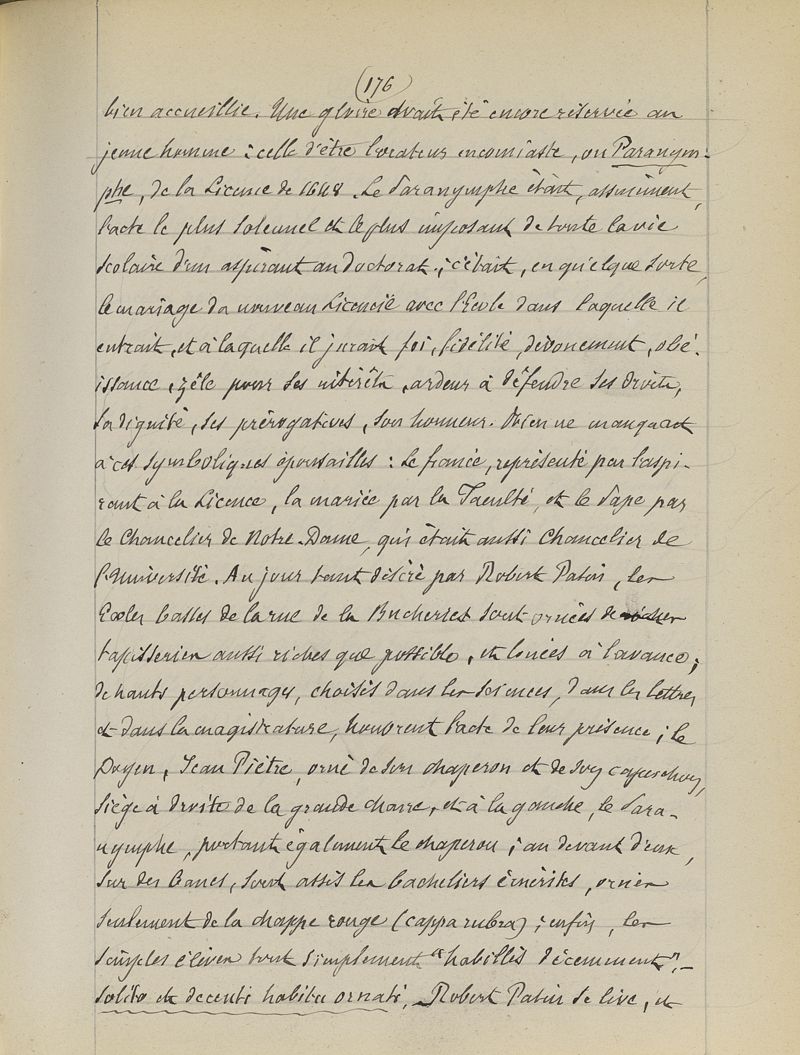 (176)
bien accueillie. Une gloire avait été encore réservée au
jeune homme : celle d'être l'orateur encomiaste, ou Paranym-
phe, de la Licence de 1648. Le Paranymphe était, assurément,
l'acte le plus solennel et le plus imposant de toute la vie
scolaire d'un aspirant au doctorat ; c'était, en quelque sorte,
le mariage du nouveau Licencié avec l'Ecole dans laquelle il
entrait, et à laquelle il jurait foi, fidélité, dévouement, obé-
issance, zèle pour ses intérêts, ardeur à défendre ses droits,
sa dignité, ses prérogatives, son honneur. Rien ne manquait
à ces symboliques épousailles : le fiancé, représenté par l'aspi-
rant à la Licence, la mariée par la Faculté, et le Pape par
le Chancelier de Notre-Dame, qui était aussi Chancelier de
l'Université. Au jour tant désiré par Robert Patin, les
Ecoles basses de la rue de la Bucherie sont ornées de
tapisseries aussi riches que possible, et louées à l'avance ;
de hauts personnages, choisis dans les sciences, dans les lettres
et dans la magistrature, honorent l'acte de leur présence ; le
Doyen, Jean Piètre, orné de son chaperon et de son capuchon,
siège à droite de la grande chaire, et à la gauche, le Para-
nymphe, portant également le chaperon ; au devant d'eux,
sur des bancs, sont assis les bacheliers émérites, ornés
seulement de la chappe rouge (cappa rubra) ; enfin, les
simples élèves tout simplement "habillés décemment", -
solito et decenti habitu ornati. - Robert Patin se lève, et